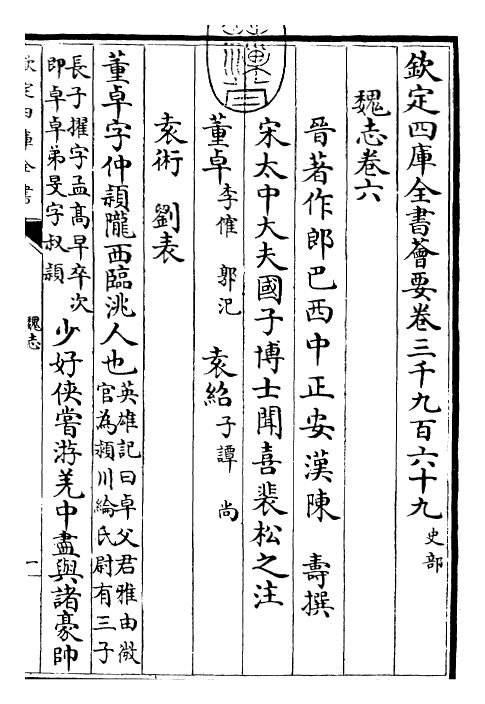 欽定四庫全書薈要卷三千九百六十九 史部
魏志卷六
晉著作郎巴西中正安漢陳 壽撰
宋太中大夫國子博士聞喜裴松之注
董卓 李傕 郭汜 袁紹 子譚 尚
袁術 劉表
董卓字仲潁隴西臨洮人也 英雄記曰卓父君雅由微
官為潁川綸氏尉有三子
長子擢字孟高早卒次
即卓卓弟旻字叔潁 少好俠嘗游羌中盡與諸豪帥
欽定四庫全書
魏志
一